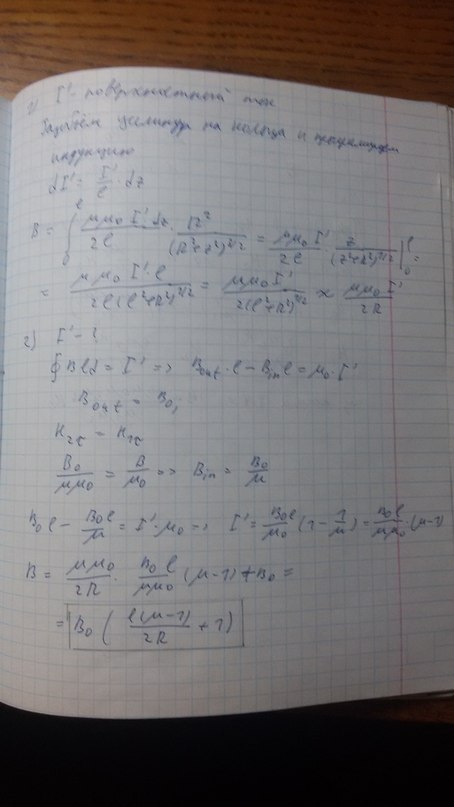 1) I' - поверхностный ток
Разобьём цилиндр на кольца и проинтегрируем
индукцию
dI' = I'/l · dz
B = ∫₀ˡ μμ₀ I' dz / 2l · R² / (R²+z²)^3/2 = μμ₀ I' / 2l · z / (z²+R²)^1/2 |₀ˡ =
= μμ₀ I' · l / 2l(l²+R²)^1/2 = μμ₀ I' / 2(l²+R²)^1/2 ≈ μμ₀ I' / 2R
2) I' - ?
∮ B l d = I' => B out · l − B in l = μ₀ · I'
B out = B₀,
H₂τ = H₁τ
B₀ / μμ₀ = B / μ₀ => B in = B₀ / μ
B₀ l − B₀ l / μ = I' · μ₀ => I' = B₀ l / μ₀ (1 − 1/μ) = B₀ l / μμ₀ · (μ−1)
B = μμ₀ / 2R · B₀ l / μμ₀ · (μ−1) + B₀ =
= B₀ ( l(μ−1) / 2R + 1 )